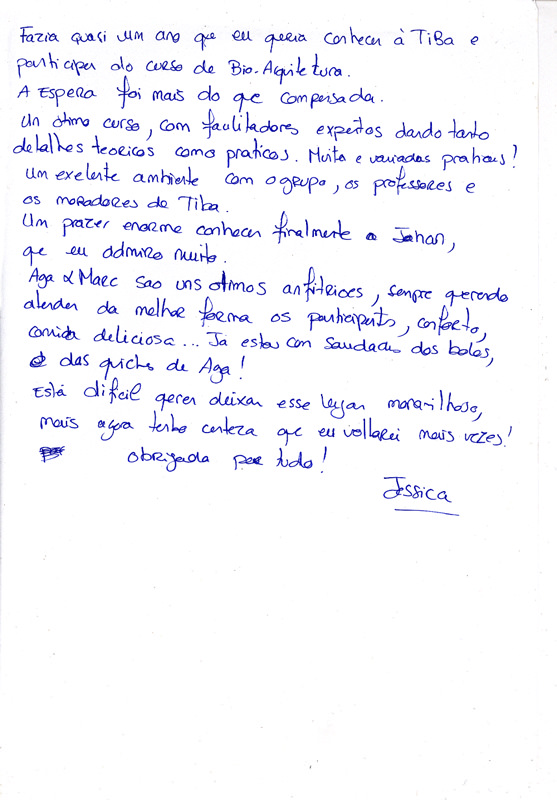 Fazia quasi um ano que eu queria conhecer à TiBa e
participar do curso de Bio-Aquitetura.
A Espera foi mais do que compensada.
Un ótimo curso, com facilitadores expertos dando tanto
detalhes teoricos como praticos. Muita e variadas praticas!
Um exelente ambiente com o grupo, os professores e
os moradores de Tiba.
Um prazer enorme conhecer finalmente a Johan,
que eu admiro muito.
Aga & Marc sao uns otimos anfitrioes, sempre querendo
atender da melhor forma os participants, conforto,
comida deliciosa... Já estou con saudades dos bolos,
e das quichs de Aga!
Está dificil querer deixar esse lugar maravilhoso,
mais agora tenho certeza que eu voltarei mais vezes!
obrigada por tudo!
Jessica